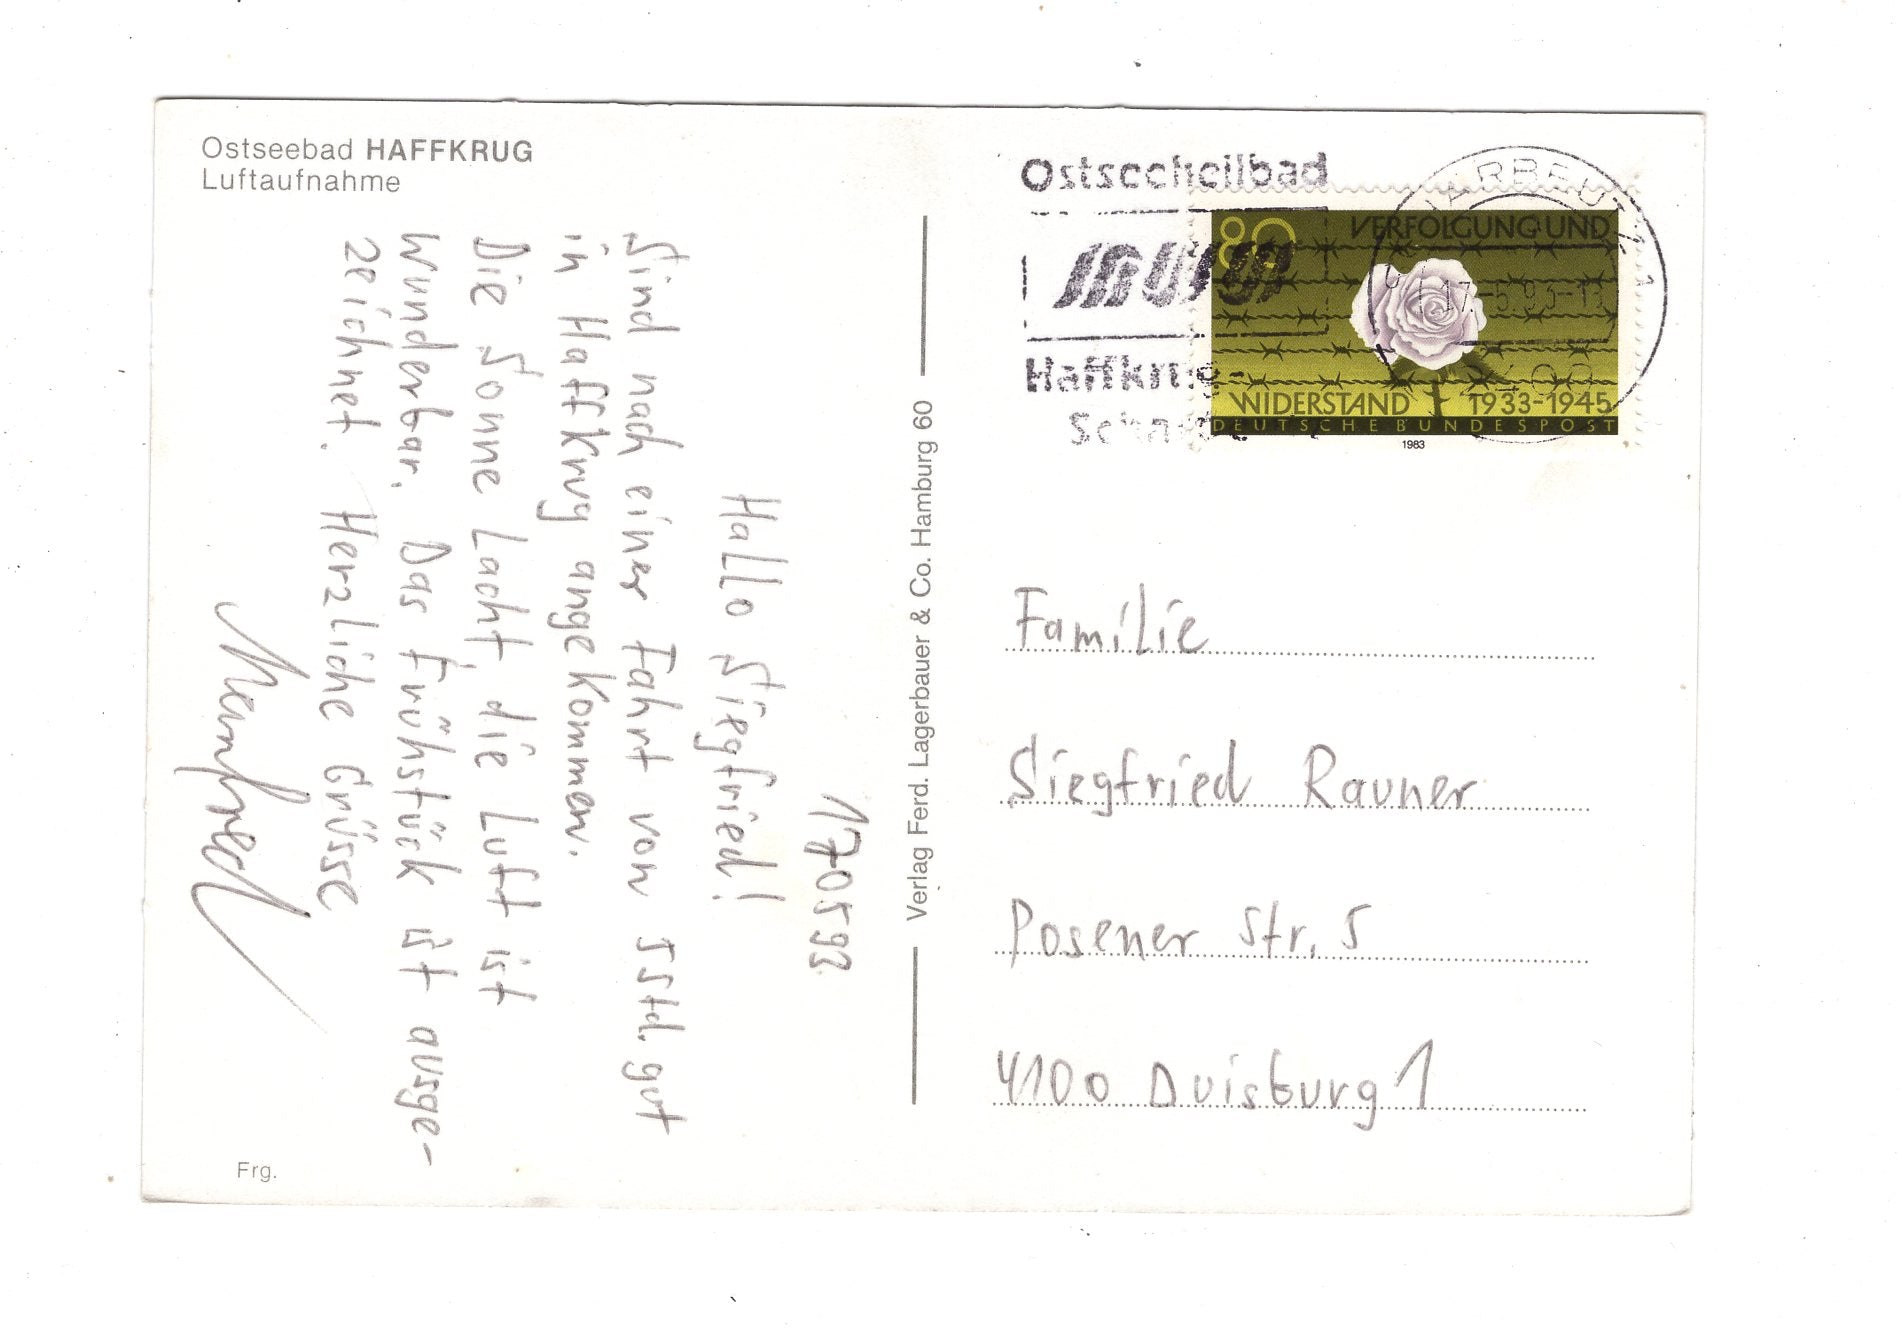 Ostseebad HAFFKRUG
Luftaufnahme
170593
Hallo Siegfried!
Sind nach einer Fahrt von 5Std. gut
in Haffkrug angekommen.
Die Sonne Lacht, die Luft ist
Wunderbar. Das Frühstück ist ausge-
zeichnet. Herzliche Grüsse
Manfred
Frg.
Verlag Ferd. Lagerbauer & Co. Hamburg 60
Ostseeheilbad
Haffkrug-
80
VERFOLGUNG UND
WIDERSTAND 1933-1945
DEUTSCHE BUNDESPOST
1983
Familie
Siegfried Rauner
Posener Str. 5
4100 Duisburg 1